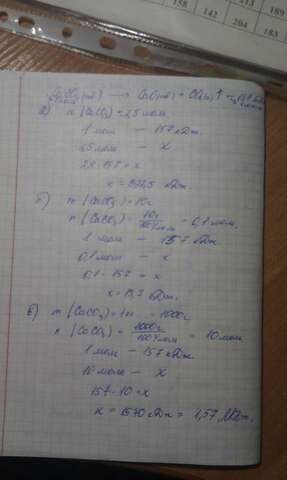 158
142
204
213
183
189
CaCO₃(тв) → CaO(тв) + CO₂(г)↑ − 157 кДж
а) n (CaCO₃) = 2,5 моль
1 моль — 157 кДж.
2,5 моль — x
2,5·157 = x
x = 392,5 кДж.
б) m (CaCO₃) = 10г
n (CaCO₃) = 10г / 100 г/моль = 0,1 моль.
1 моль — 157 кДж.
0,1 моль — x
0,1 · 157 = x
x = 15,7 кДж.
в) m (CaCO₃) = 1кг = 1000г
n (CaCO₃) = 1000г / 100 г/моль = 10 моль
1 моль — 157 кДж
10 моль — x
157·10 = x
x = 1570 кДж = 1,57 МДж.